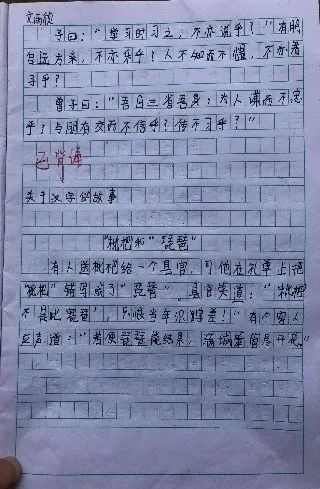 子曰：“学习时习之，不亦说乎？”有朋
自远方来，不亦乐乎？人不知而不愠，不亦君
子乎？
曾子曰：“吾日三省吾身：为人谋而不忠
乎？与朋友交而不信乎？传不习乎？”
已背诵
关于汉字的故事
“枇杷和”琵琶”
有人送枇杷给一个县官，可他在礼单上把
“枇杷”错写成了“琵琶”，县官笑道：“枇杷
不是此琵琶”，只恨当年识字差！”有个客人
应声道：“若使琵琶能结果，满城箫管尽开花。”